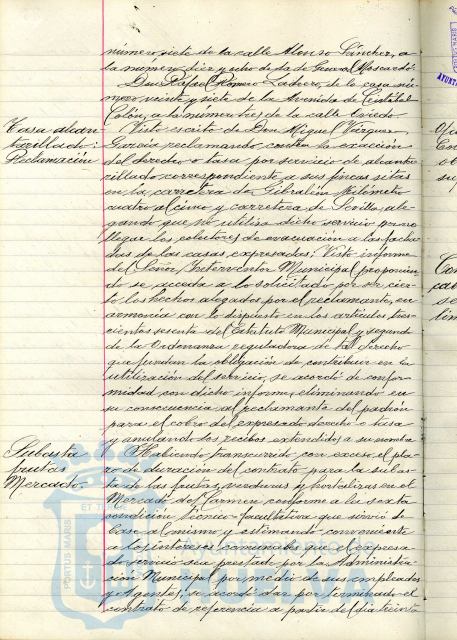 número siete de la calle Alonso Sánchez, a
la número diez y ocho de la de Guerra Moscardó.
Don Rafael Romero Ladrero, de la casa nú-
mero veinte y siete de la Avenida de Cristóbal
Colón, a la número tres de la calle Oviedo.
Tasa alcan-
tarillado:
Reclamación
Visto escrito de Don Miguel Vázquez
García reclamando contra la exacción
del derecho o tasa por servicio de alcanta
rillado correspondiente a sus fincas sitas
en la carretera de Gibraleón, kilómetro
cuatro al cinco y carretera de Sevilla, ale-
gando que no utiliza dicho servicio por no
llegar los colectores de evacuación a las facha
das de las casas expresadas; Visto informe
del Señor Interventor Municipal proponien
do se acceda a lo solicitado por ser cier-
to los hechos alegados por el reclamante, en
armonía con lo dispuesto en los artículos tres-
cientos sesenta del Estatuto Municipal y segundo
de la Ordenanza reguladora de tal derecho
que fundan la obligación de contribuir en la
utilización del servicio, se acordó de confor-
midad con dicho informe, eliminando en
su consecuencia al reclamante del padrón
para el cobro del expresado derecho o tasa
y anulando los recibos extendidos a su nombre
Subasta
frutas
Mercado.
Habiendo transcurrido con exceso el pla
zo de duración del contrato para la subas
ta de las frutas, verduras y hortalizas en el
Mercado del Carmen, conforme a la sexta
condición técnico-facultativa que sirvió de
base al mismo y estimando conveniente
a los intereses comunales que el expresa
do servicio sea prestado por la Administra
ción Municipal por medio de sus empleados
y Agentes; se acordó dar por terminado el
contrato de referencia a partir del día treinta
Ayuntamiento de
HUELVA
PORTUS MARIS